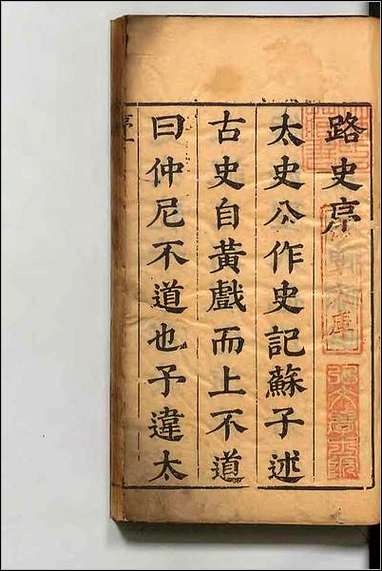 路史序
太史公作史記蘇子述
古史自黃戲而上不道
曰仲尼不道也予違太
序一
庫